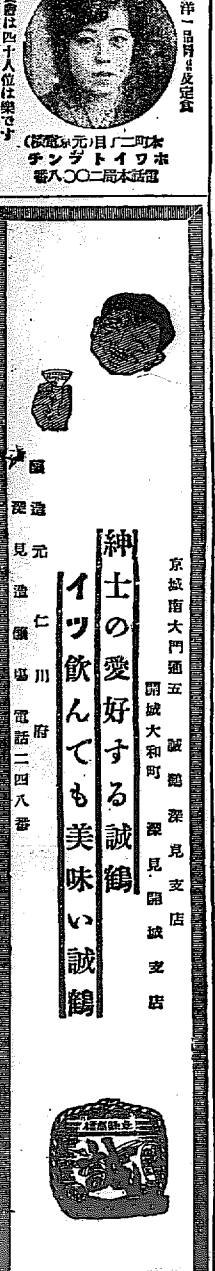 洋一品料理及定食
會は四十人位は樂です
電話本局二〇〇八番
京城南大門通五 誠鶴深見支店
開城大和町 深見開城支店
紳士の愛好する誠鶴
イツ飲んても美味い誠鶴
釀造元 仁川府
深見釀造場 電話二四八番
誠